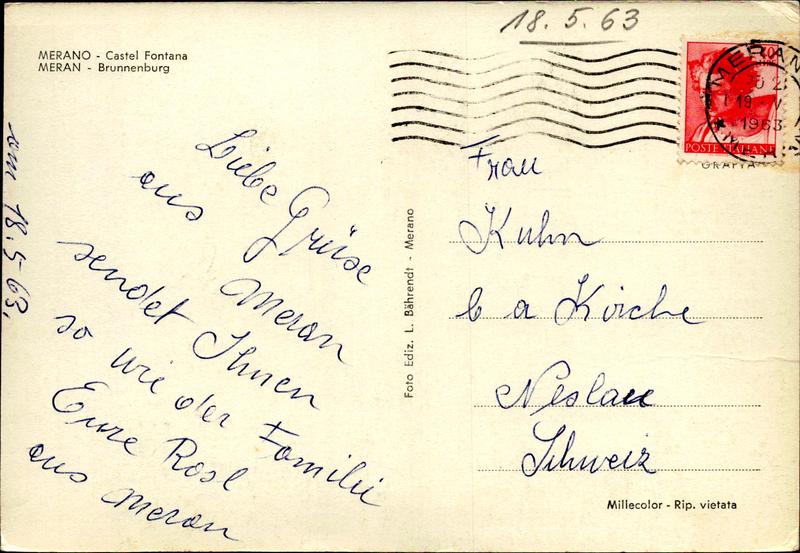 18.5.63
MERANO - Castel Fontana
MERAN - Brunnenburg
Liebe Grüse
aus Meran
sendet Ihnen
so wie der Familie
Eure Rosl
aus Meran
am 18.5 63,
Foto Ediz. L. Bährendt - Merano
MERANO
19 - V
1963
POSTE ITALIANE
Frau
Kuhn
b a Kirche
Neslau
Schweiz
Millecolor - Rip. vietata